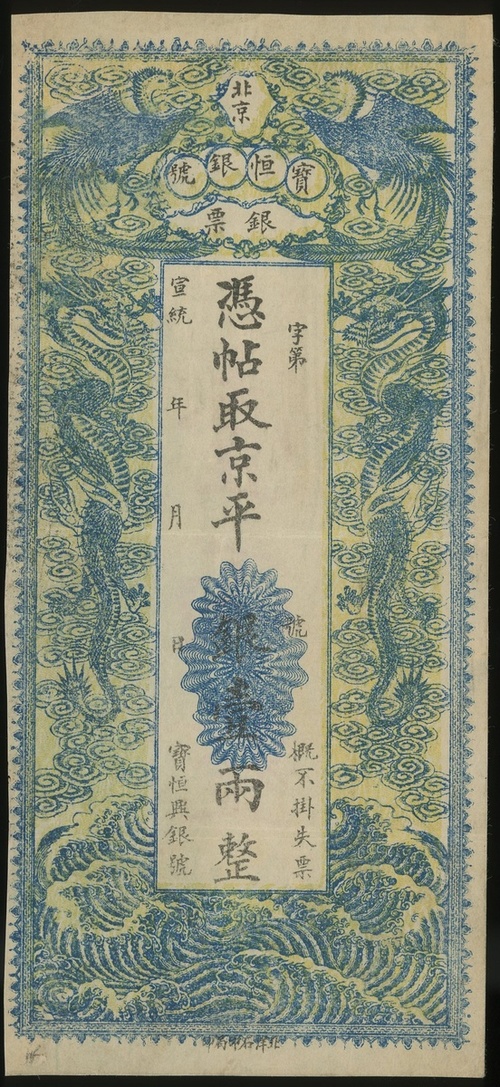 北京
寶恒銀號
銀票
字第　號　概不掛失票
憑帖取京平銀壹兩整
宣統　年　月　日　寶恒興銀號
北洋石印局印